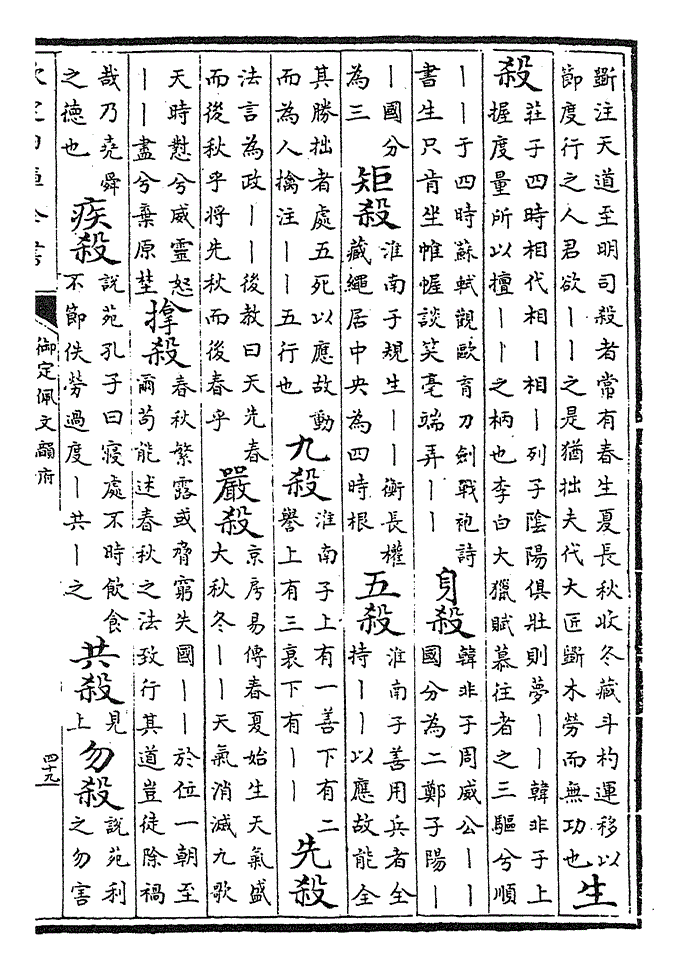 斲注天道至明司殺者常有春生夏長秋收冬藏斗杓運移以
節度行之人君欲丨丨之是猶拙夫代大匠斲木勞而無功也
生殺
莊子四時相代相丨相丨列子陰陽俱壯則夢丨丨韓非子上
握度量所以擅丨丨之柄也李白大獵賦慕往者之三驅兮順
丨丨于四時蘇軾觀歐育刀劍戰袍詩
書生只肯坐帷幄談笑毫端弄丨丨
身殺
韓非子周威公丨丨
國分為二鄭子陽丨
丨國分
為三
矩殺
淮南子規生丨丨衡長權
藏繩居中央為四時根
五殺
淮南子善用兵者全
持丨丨以應故能全
其勝拙者處五死以應故動
而為人擒注丨丨五行也
九殺
淮南子上有一善下有二
譽上有三衰下有丨丨
先殺
法言為政丨丨後教曰天先春
而後秋乎將先秋而後春乎
嚴殺
京房易傳春夏始生天氣盛
大秋冬丨丨天氣消滅九歌
天時懟兮威靈怒
丨丨盡兮棄原埜
揜殺
春秋繁露或脅窮失國丨丨於位一朝至
爾苟能述春秋之法致行其道豈徒除禍
哉乃堯舜
之德也
疾殺
說苑孔子曰寢處不時飲食
不節佚勞過度丨共丨之
共殺
見
上
勿殺
說苑利
之勿害
欽定四庫全書
御定佩文韻府
四十九